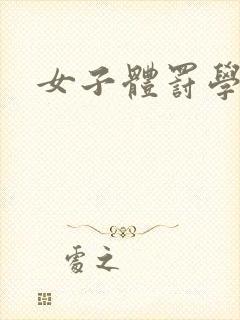 女子體罰學
霽之